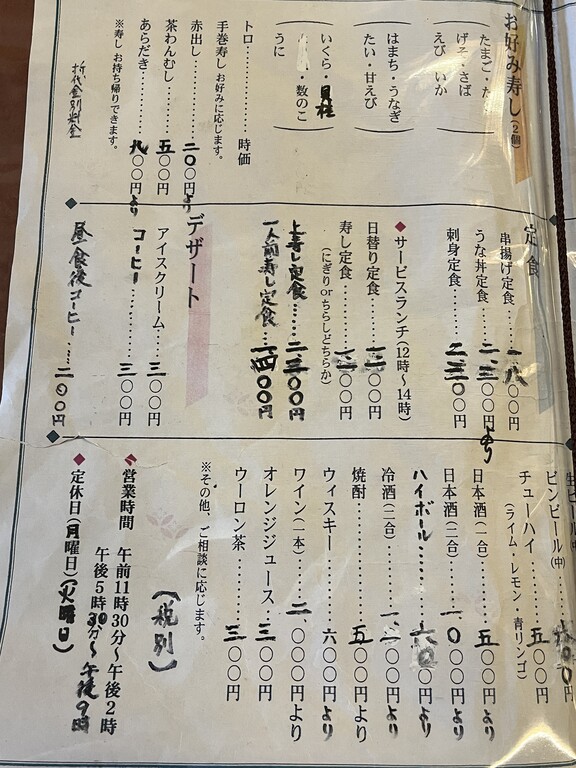 お好み寿し(2個)
たまご・た
げそ・さば
えび・いか
はまち・うなぎ
たい・甘えび
いくら・貝柱
・数のこ
うに
トロ………時価
手巻寿し お好みに応じます。
赤出し………二〇〇円より
茶わんむし………五〇〇円
あらだき………九〇〇円より
※寿し お持ち帰りできます。
折代金別料金
定食
串揚げ定食………一、八〇〇円
うな丼定食………二、三〇〇円より
刺身定食………二、三〇〇円
◆サービスランチ(12時〜14時)
日替り定食………円
寿し定食………円
(にぎりorちらしどちらか)
上寿し定食………二、三〇〇円
一人前寿し定食………一、四〇〇円
デザート
アイスクリーム………三〇〇円
コーヒー………三〇〇円
昼食後コーヒー………二〇〇円
生ビール(中)
ビンビール(中)
チューハイ………五〇〇円
(ライム・レモン・青リンゴ)
日本酒(一合)………五〇〇円より
日本酒(二合)………一、〇〇〇円より
ハイボール………六〇〇円より
冷酒(二合)………円より
焼酎………五〇〇円より
ウィスキー………六〇〇円より
ワイン(一本)………二、〇〇〇円より
オレンジジュース………三〇〇円
ウーロン茶………三〇〇円
※その他、ご相談に応じます。
(税別)
◆営業時間 午前11時30分〜午後2時
午後5時30分〜午後9時
◆定休日(月曜日)(火曜日)